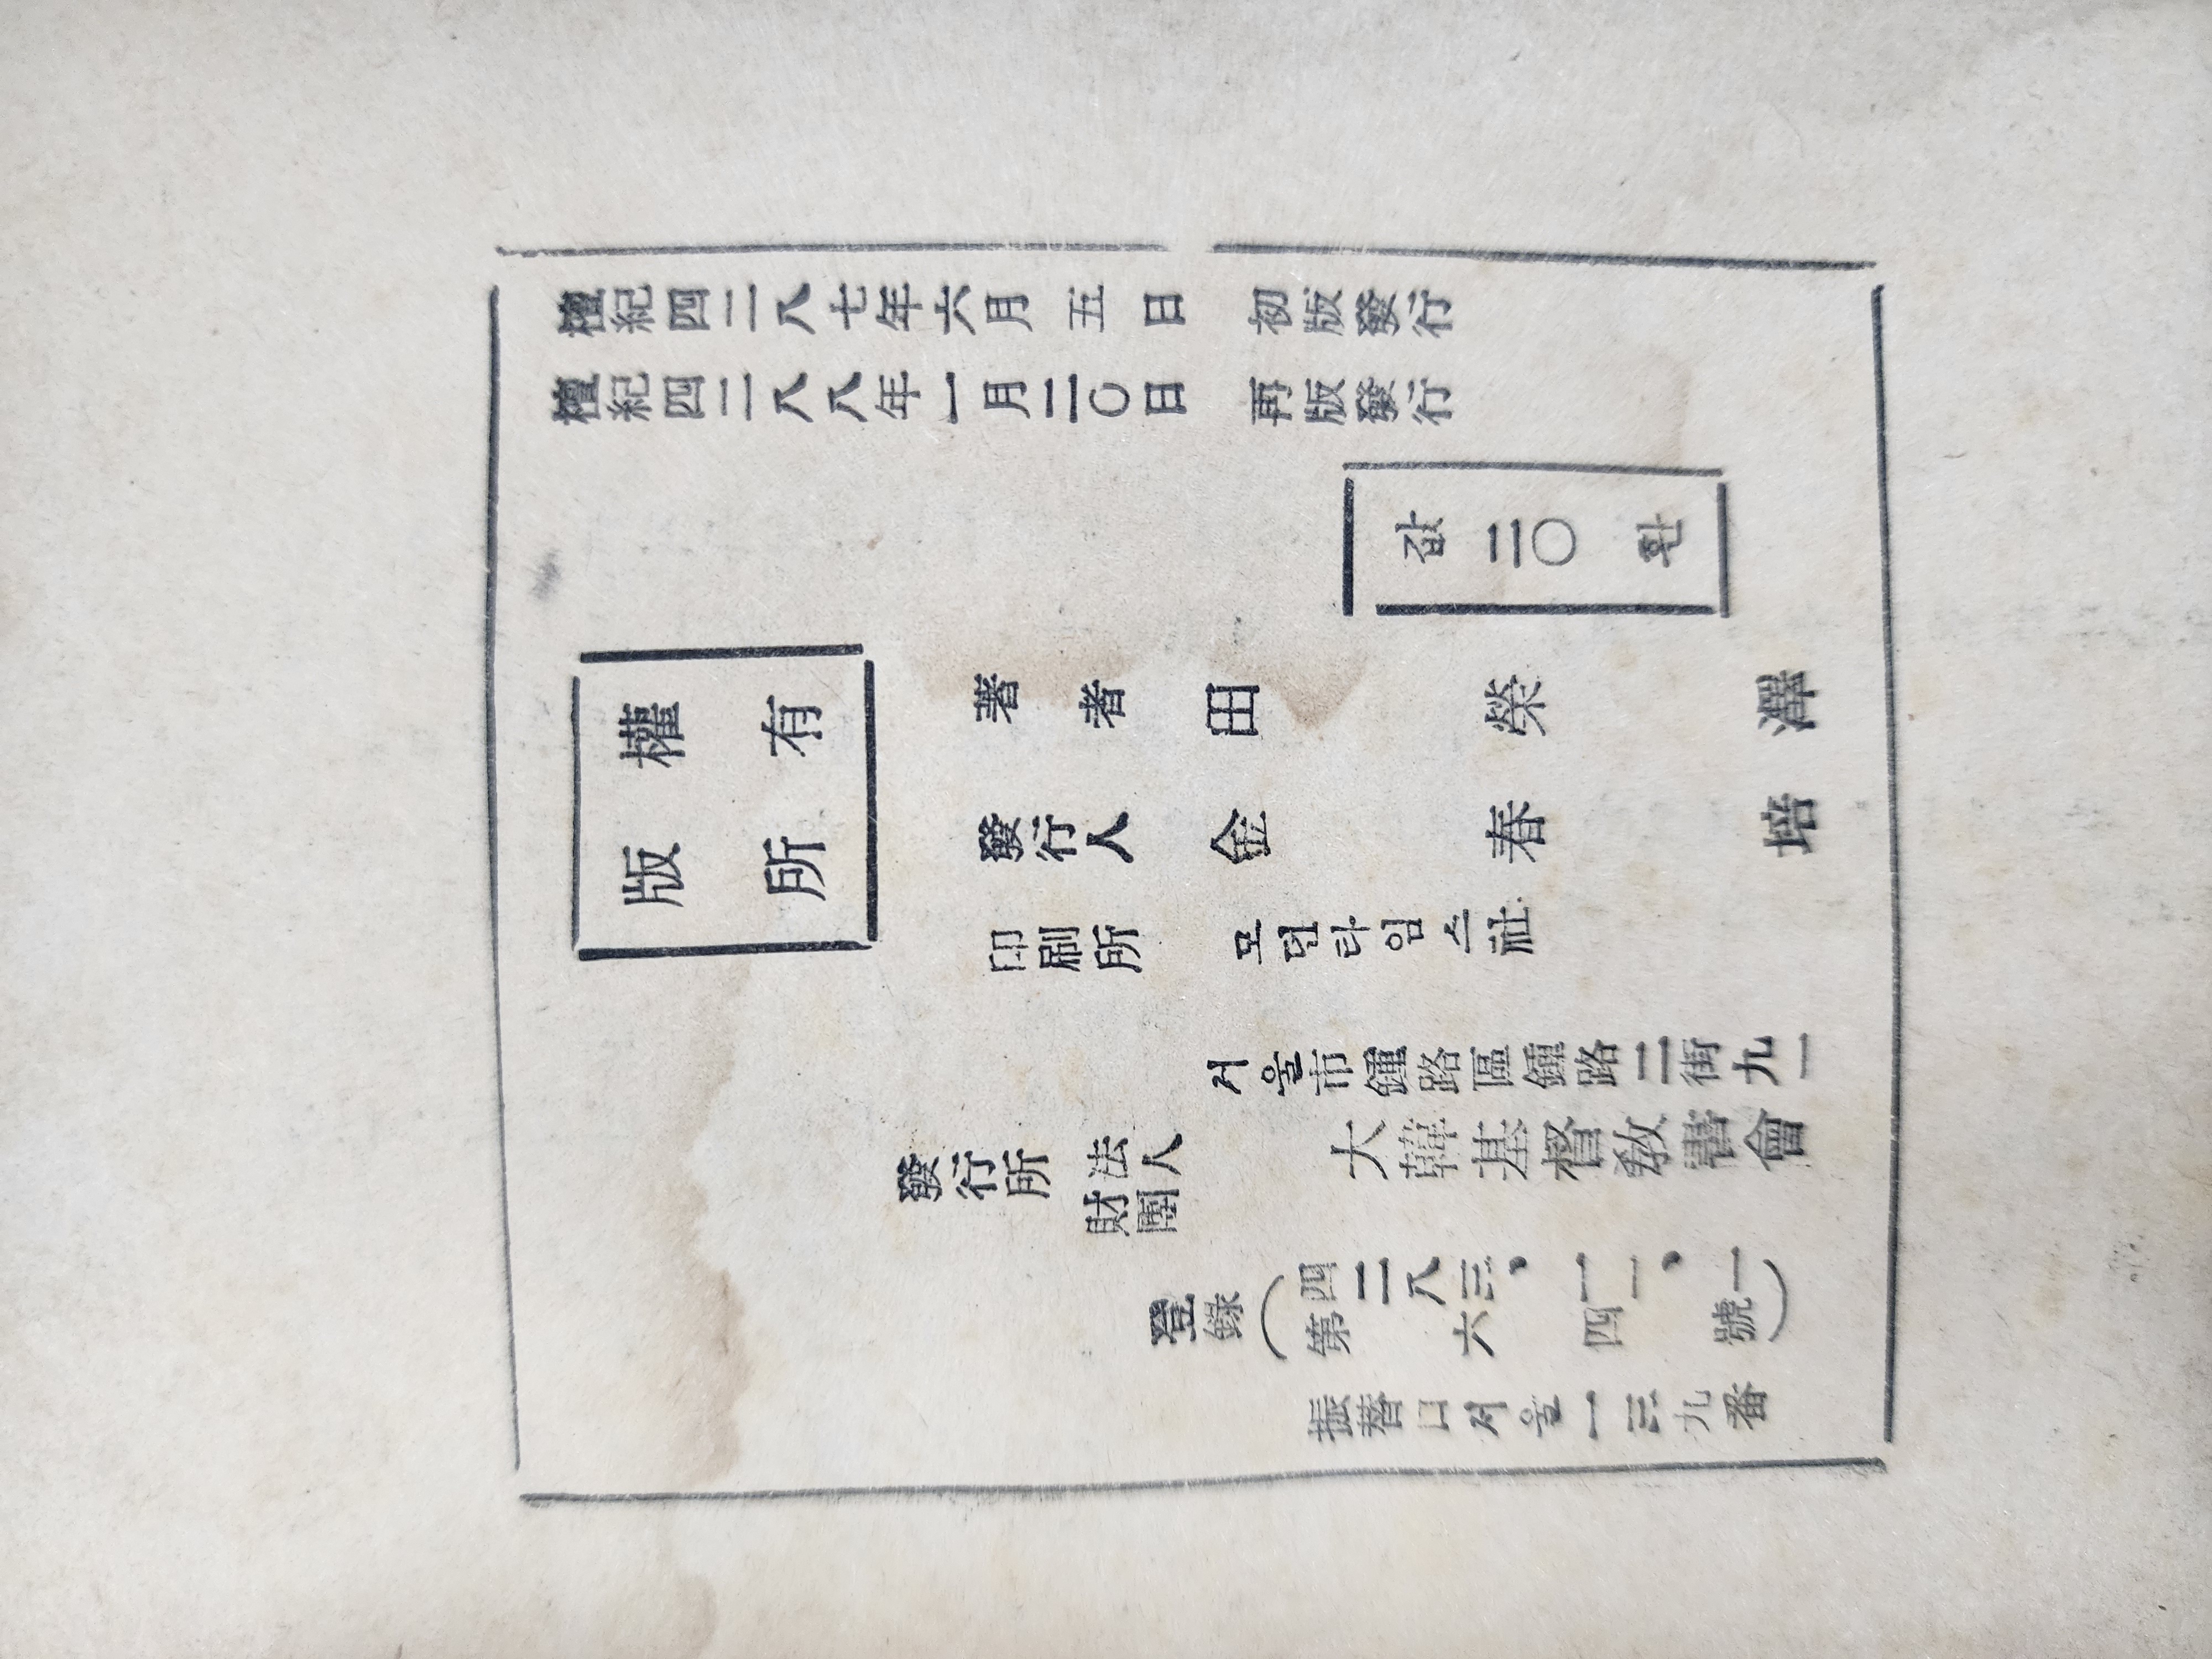 檀紀四二八七年六月五日 初版發行
檀紀四二八八年一月二〇日 再版發行
값 二〇 환
版權
所有
著者 田榮澤
發行人 金春培
印刷所 모던타임스社
서울市鍾路區鍾路二街九一
發行所 財團法人 大韓基督敎書會
登錄(四二八三、一一、一
第六四號)
振替口서울一三九番